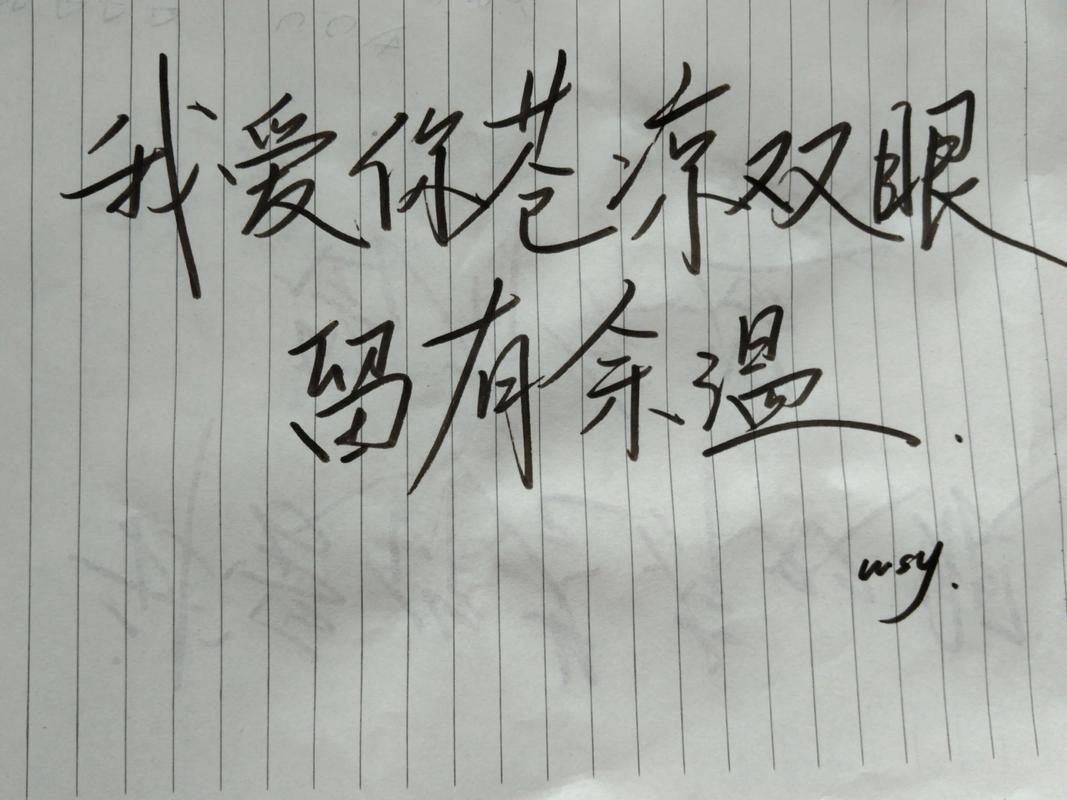 我爱你苍凉双眼
留有余温.
wsy.